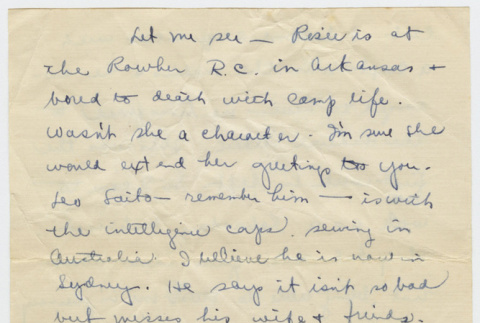 Let me see — Rosie is at
the Rowher R.C. in Arkansas +
bored to death with camp life.
Wasn't she a character. I'm sure she
would extend her greetings to you.
Leo Saito — remember him — is with
the intelligence corps. serving in
Australia. I believe he is now in
Sydney. He says it isn't so bad
but misses his wife + friends.